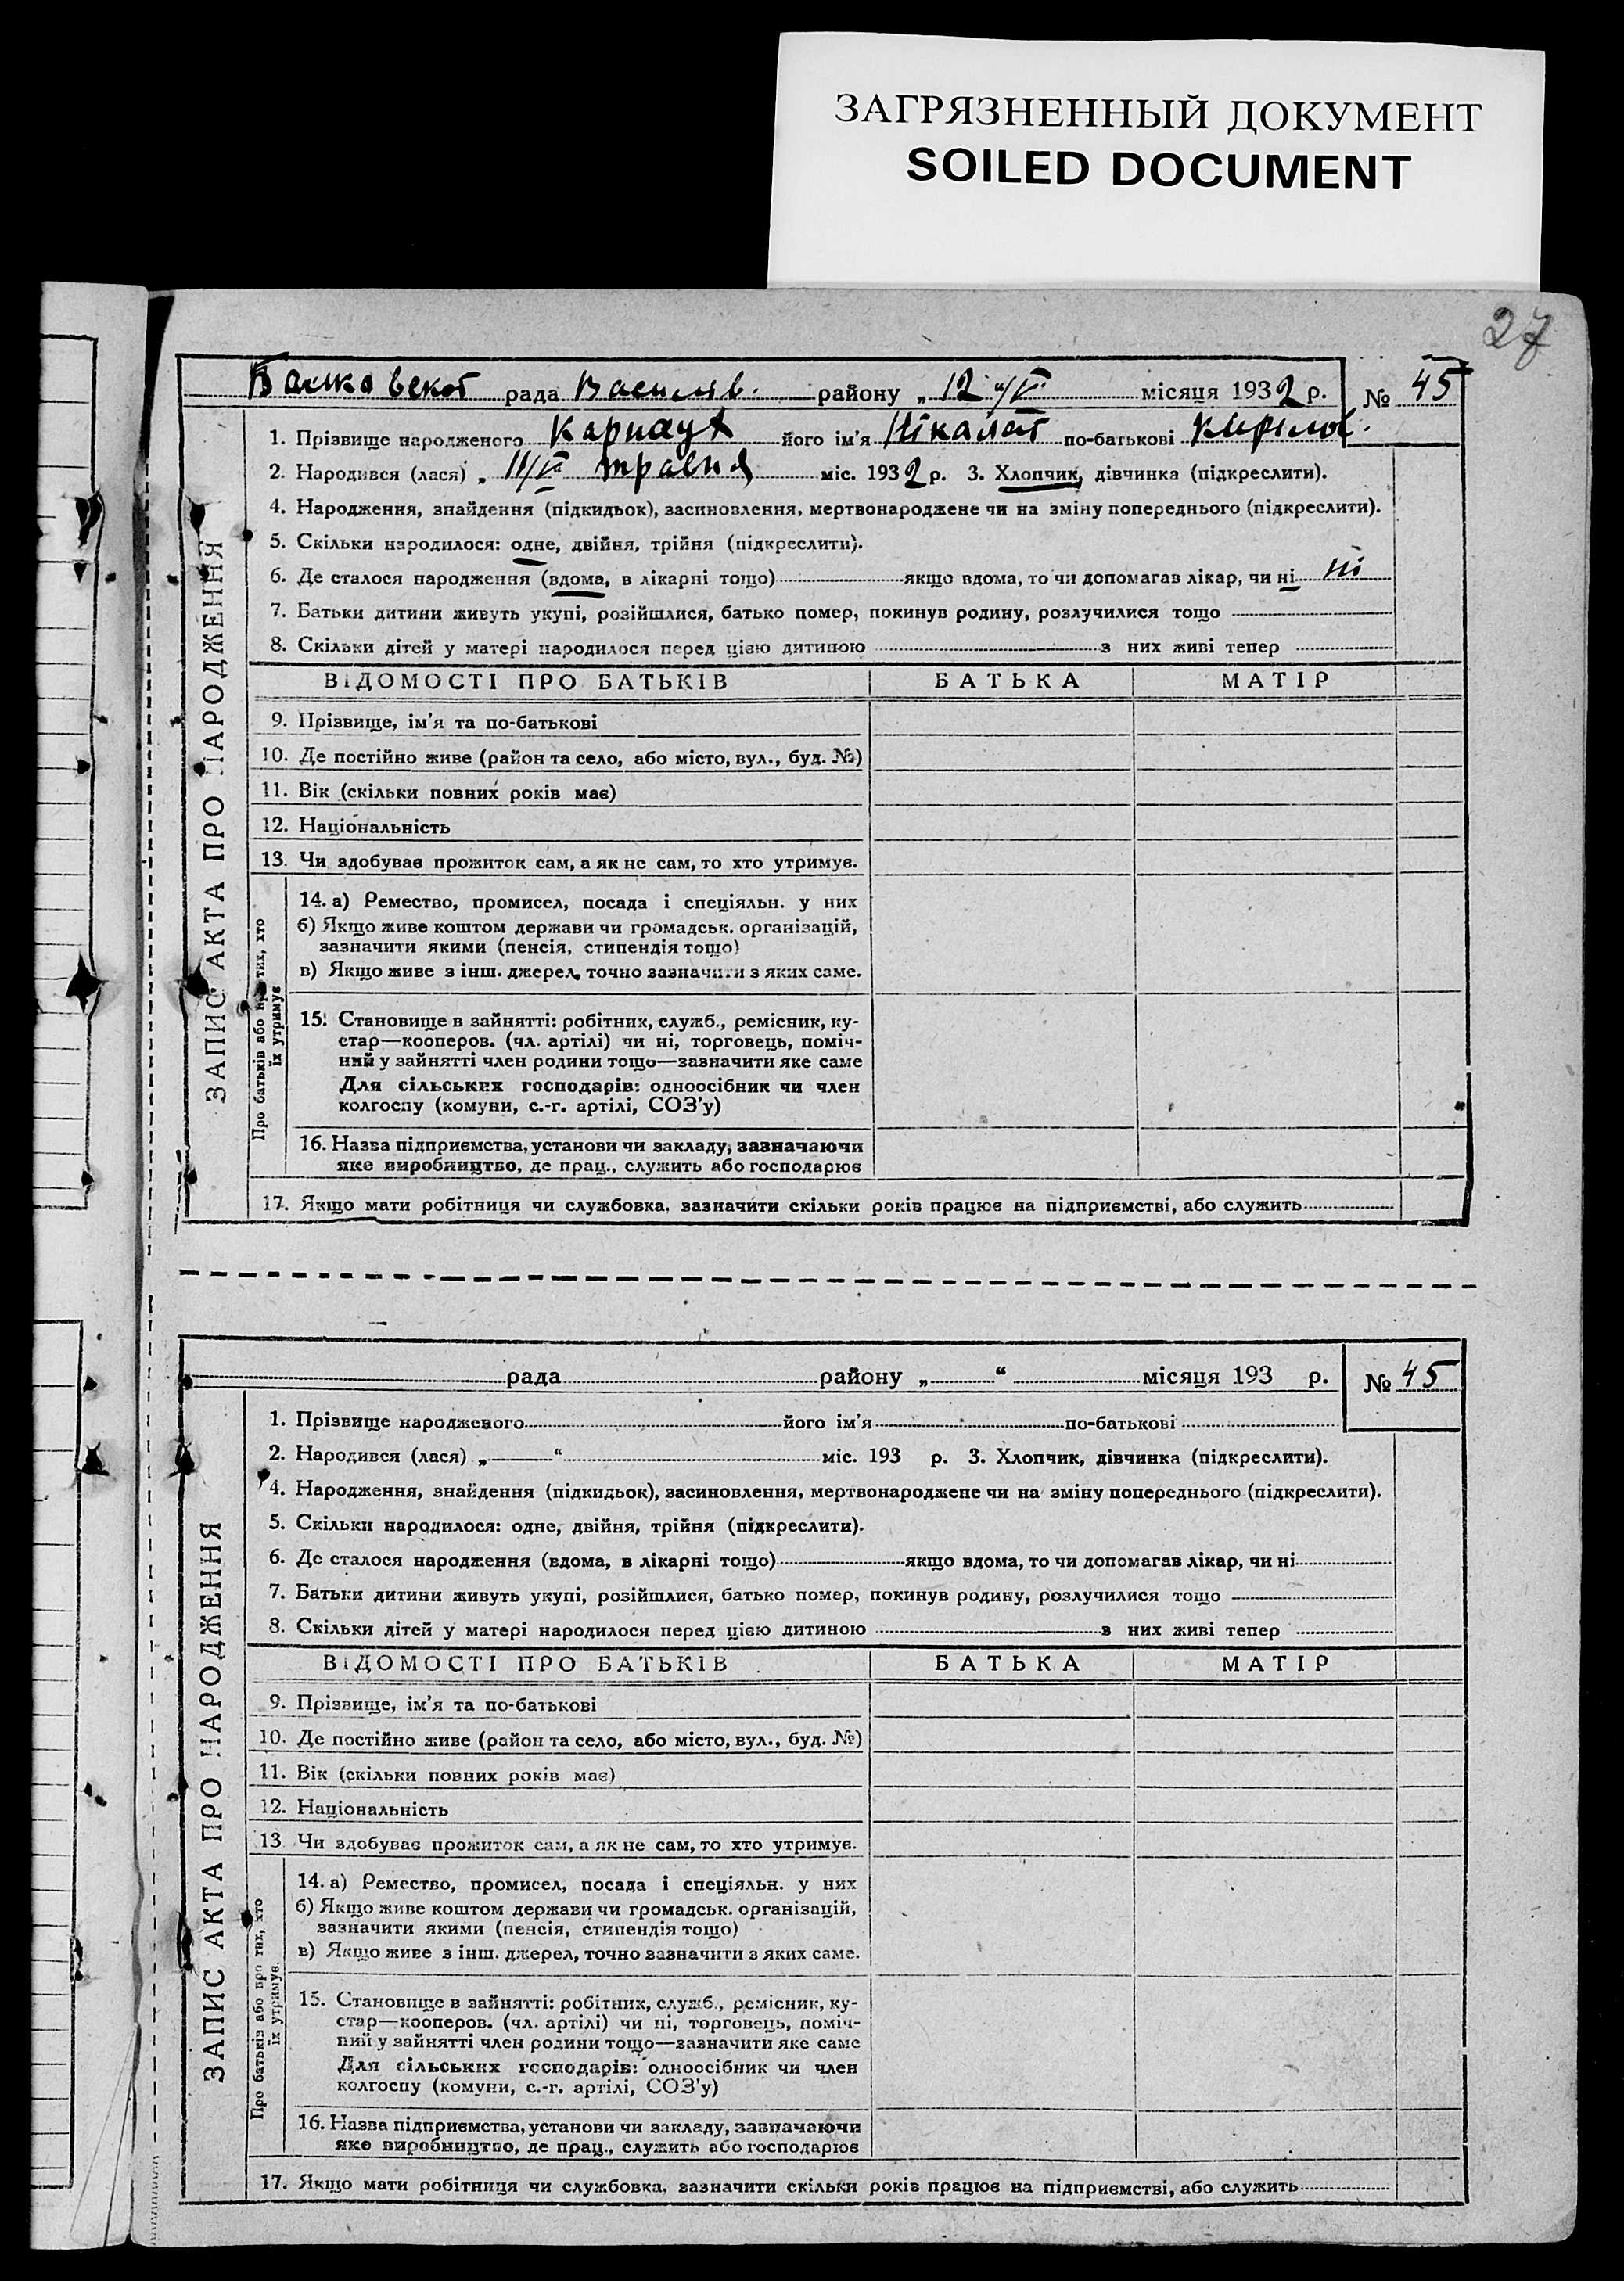 ЗАГРЯЗНЕННЫЙ ДОКУМЕНТ
SOILED DOCUMENT
27
рада Василів. району „12 "/V місяця 1932 р. № 45
ЗАПИС АКТА ПРО НАРОДЖЕННЯ
1. Прізвище народженого його ім'я по-батькові
2. Народився (лася) „ травня міс. 1932 р. 3. Хлопчик, дівчинка (підкреслити).
4. Народження, знайдення (підкидьок), засиновлення, мертвонароджене чи на зміну попереднього (підкреслити).
5. Скільки народилося: одне, двійня, трійня (підкреслити).
6. Де сталося народження (вдома, в лікарні тощо) якщо вдома, то чи допомагав лікар, чи ні ні
7. Батьки дитини живуть укупі, розійшлися, батько помер, покинув родину, розлучилися тощо
8. Скільки дітей у матері народилося перед цією дитиною з них живі тепер
ВІДОМОСТІ ПРО БАТЬКІВ БАТЬКА МАТІР
9. Прізвище, ім'я та по-батькові
10. Де постійно живе (район та село, або місто, вул., буд. №)
11. Вік (скільки повних років має)
12. Національність
13. Чи здобуває прожиток сам, а як не сам, то хто утримує.
Про батьків або про тих, хто їх утримує
14. а) Ремество, промисел, посада і спеціяльн. у них
б) Якщо живе коштом держави чи громадськ. організацій,
зазначити якими (пенсія, стипендія тощо)
в) Якщо живе з інш. джерел, точно зазначити з яких саме.
15. Становище в зайнятті: робітник, служб., ремісник, ку-
стар—кооперов. (чл. артілі) чи ні, торговець, поміч-
ний у зайнятті член родини тощо—зазначити яке саме
Для сільських господарів: одноосібник чи член
колгоспу (комуни, с.-г. артілі, СОЗ'у)
16. Назва підприємства, установи чи закладу, зазначаючи
яке виробництво, де прац., служить або господарює
17. Якщо мати робітниця чи службовка, зазначити скільки років працює на підприємстві, або служить
рада району „ “ місяця 193 р. № 45
ЗАПИС АКТА ПРО НАРОДЖЕННЯ
1. Прізвище народженого його ім'я по-батькові
2. Народився (лася) „ “ міс. 193 р. 3. Хлопчик, дівчинка (підкреслити).
4. Народження, знайдення (підкидьок), засиновлення, мертвонароджене чи на зміну попереднього (підкреслити).
5. Скільки народилося: одне, двійня, трійня (підкреслити).
6. Де сталося народження (вдома, в лікарні тощо) якщо вдома, то чи допомагав лікар, чи ні
7. Батьки дитини живуть укупі, розійшлися, батько помер, покинув родину, розлучилися тощо
8. Скільки дітей у матері народилося перед цією дитиною з них живі тепер
ВІДОМОСТІ ПРО БАТЬКІВ БАТЬКА МАТІР
9. Прізвище, ім'я та по-батькові
10. Де постійно живе (район та село, або місто, вул., буд. №)
11. Вік (скільки повних років має)
12. Національність
13. Чи здобуває прожиток сам, а як не сам, то хто утримує.
Про батьків або про тих, хто їх утримує.
14. а) Ремество, промисел, посада і спеціяльн. у них
б) Якщо живе коштом держави чи громадськ. організацій,
зазначити якими (пенсія, стипендія тощо)
в) Якщо живе з інш. джерел, точно зазначити з яких саме.
15. Становище в зайнятті: робітник, служб., ремісник, ку-
стар—кооперов. (чл. артілі) чи ні, торговець, поміч-
ний у зайнятті член родини тощо—зазначити яке саме
Для сільських господарів: одноосібник чи член
колгоспу (комуни, с.-г. артілі, СОЗ'у)
16. Назва підприємства, установи чи закладу, зазначаючи
яке виробництво, де прац., служить або господарює
17. Якщо мати робітниця чи службовка, зазначити скільки років працює на підприємстві, або служить